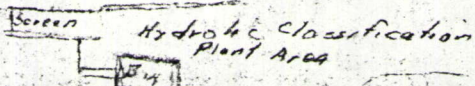 Screen
Hydrolic Classification
Plant Area
Bin